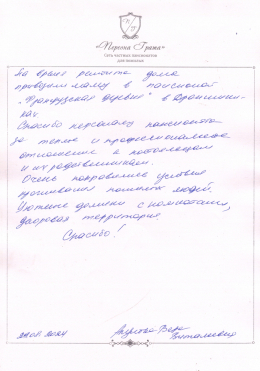 «Персона Грата»
СЕТЬ ЧАСТНЫХ ПАНСИОНАТОВ
ДЛЯ ПОЖИЛЫХ
На время ремонта дома
привозили маму в пансионат
"Французская деревня" в
Спасибо персоналу пансионата
за теплое и профессиональное
отношение к постояльцам
и их родственникам.
Очень понравились условия
проживания пожилых людей.
Уютные домики с комнатами,
здоровая территория.
Спасибо!
Вера
Витальевна